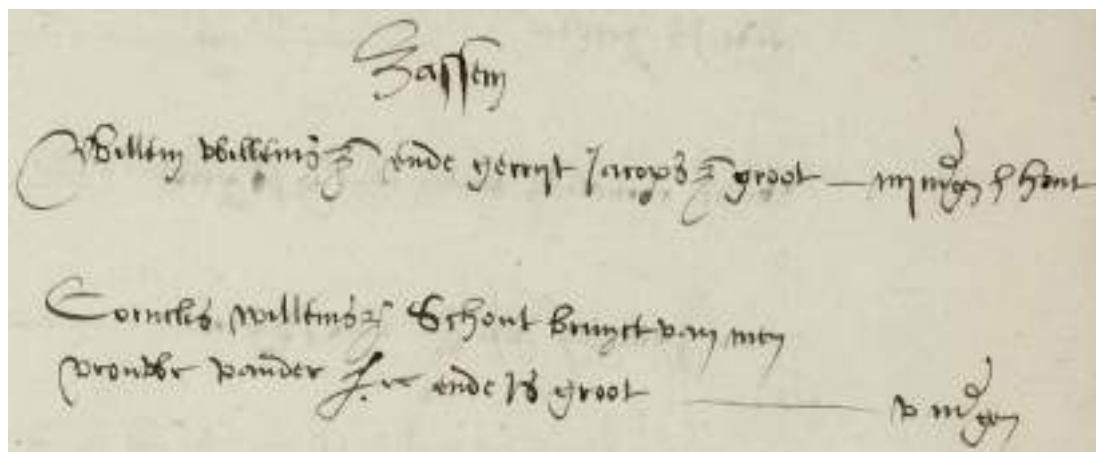 Sassem
Willem Willems z ende gerryt Jacops z groot — iiij mgen hont
Cornelis Willems z Schout bruyct van men
vrouwe vander ende is groot — v mgen